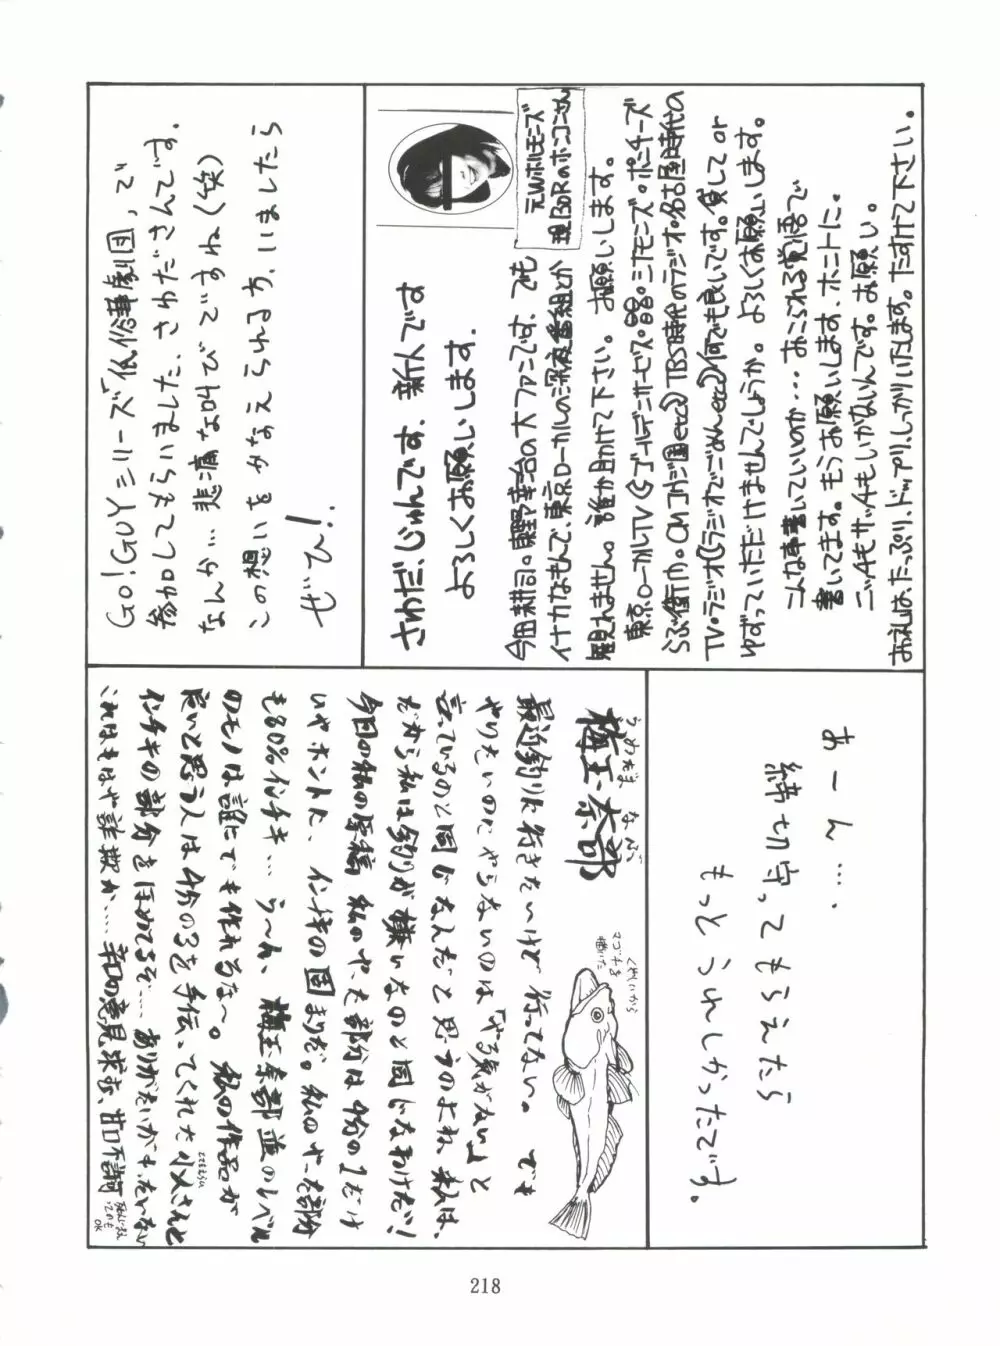 GO!GUYシリーズ「低俗華劇団」で
参加してもらいました、さわださんです。
なんか…悲痛な叫びですね(笑)
この想いをかなえられる方、いましたら
ぜひ!
さわだ、じゅんです。新人です
よろしくお願いします。
元Wホルモンズ
現BORのホンコンさん
今田耕司。東野幸治の大ファンです、でも
イナカなもんで、東京ローカルの深夜番組とか
観れません。誰か助けて下さい。お願いします。
東京ローカルTV(ゴールデンサービス。 。シナモンズ。ポンチーズ
らぶ衛門。CMコカジ園etc)TBS時代のラジオ。名古屋時代の
TV。ラジオ(ラジオでごめんetc)何でも良いです。貸して or
ゆずっていただけませんでしょうか。よろしくお願いします。
こんな事書いていいのか…おこられる覚悟で
書いてます。もうお願いします、ホントに。
ニッチもサッチもいかないんです。お願い。
お礼は、たっぷり、ドップリ、しっかりいたします。たすけて下さい。
梅玉奈部
うめだま なぶ
最近釣りに行きたいけど行ってない。でも
やりたいのにやらないのは「やる気がない」と
言っているのと同じなんだと思うのよね、私は、
だから私は釣りが嫌いなのと同じなわけだ!
今回の私の原稿、私のやった部分は4分の1だけ
いやホントに、インチキの固まりだ。私のやった部分
も80%インチキ…う〜ん、梅玉奈部並のレベル
のモノは誰にでも作れるな〜。私の作品が
良いと思う人は4分の3を手伝ってくれた 小 さんと
インチキの部分をほめてるぞ…ありがたいがもったいない
これはもはや詐欺か…辛口の意見求む、甘口不許可
OK
くやしいから
マゴチを
描いた
ま〜…。
締切守ってもらえたら
もっとうれしかったです。
218